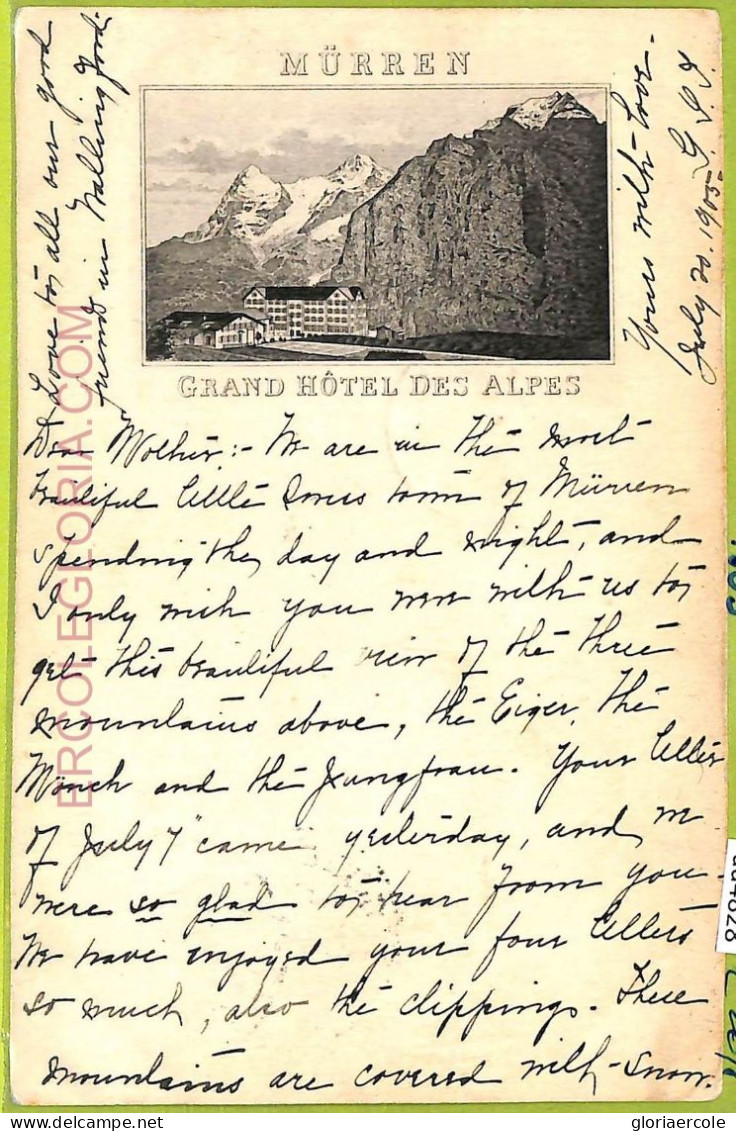 MÜRREN
GRAND HÔTEL DES ALPES
Dear Mother:- We are in the most
beautiful little Swiss town of Mürren
spending the day and night, and
I only wish you were with us to
get this beautiful view of the three
mountains above, the Eiger, the
Mönch and the Jungfrau. Your letter
of July 7" came yesterday, and we
were so glad to hear from you.
We have enjoyed your four letters
so much, also the clippings. These
mountains are covered with snow.
Love to all our good
friends in Wallingford.
Yours with love.
July 20. 1905
ERCOLEGLORIA.COM
gloriaercole